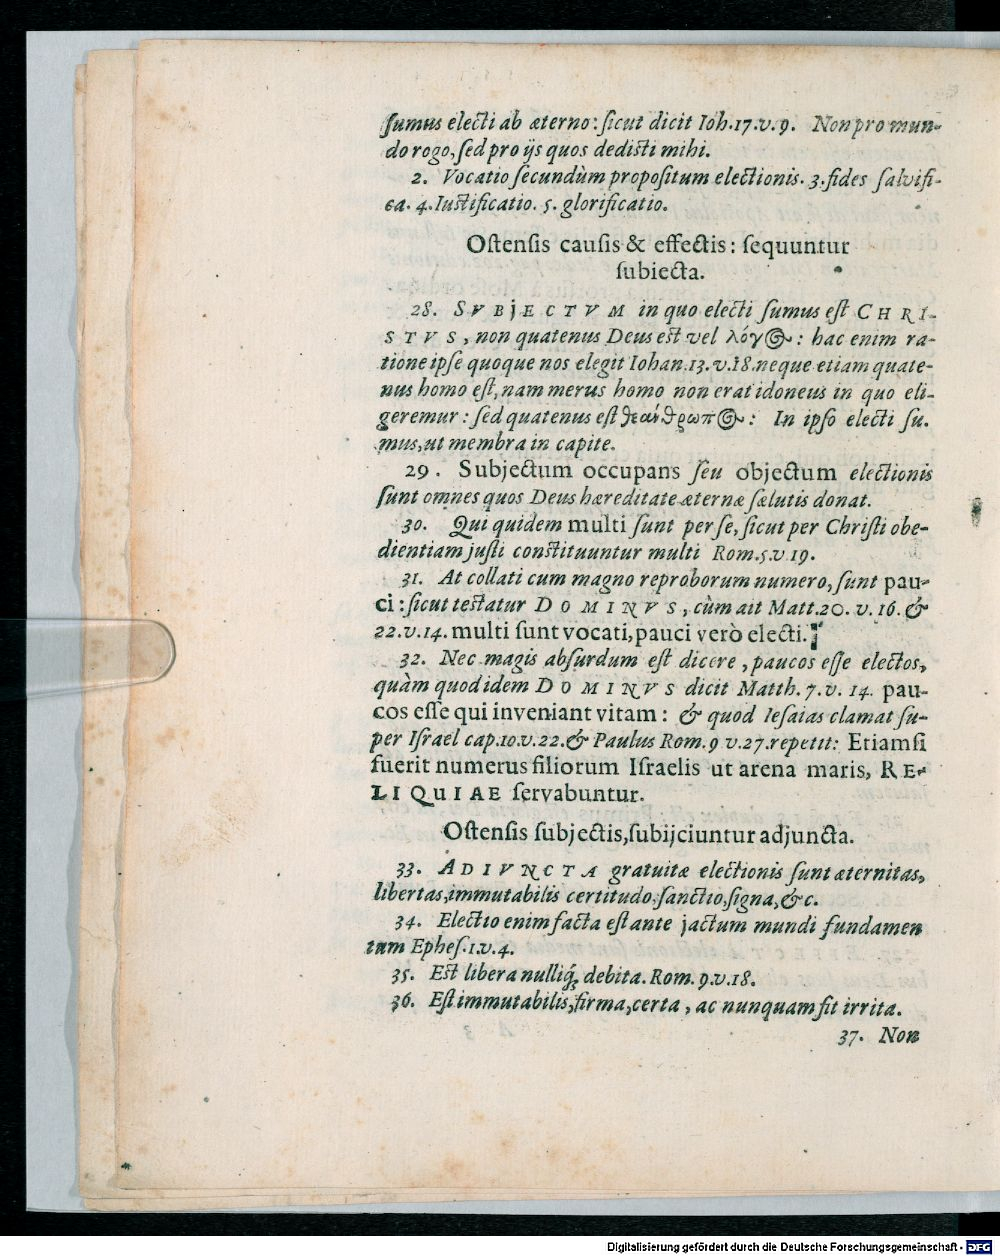 sumus electi ab æterno: sicut dicit Ioh. 17. v. 9. Non pro mun-
do rogo, sed pro ijs quos dedisti mihi.
2. Vocatio secundùm propositum electionis. 3. fides salvifi-
ca. 4. Iustificatio. 5. glorificatio.
Ostensis causis & effectis: sequuntur
subiecta.
28. SVBjECTVM in quo electi sumus est CHRI-
STVS, non quatenus Deus est vel λόγος: hac enim ra-
tione ipse quoque nos elegit Iohan. 13. v. 18. neque etiam quate-
nus homo est, nam merus homo non erat idoneus in quo eli-
geremur: sed quatenus est θεάνθρωπος: In ipso electi su-
mus, ut membra in capite.
29. Subjectum occupans seu objectum electionis
sunt omnes quos Deus hæreditate æternæ salutis donat.
30. Qui quidem multi sunt per se, sicut per Christi obe-
dientiam justi constituuntur multi Rom. 5. v 19.
31. At collati cum magno reproborum numero, sunt pau-
ci: sicut testatur DOMINVS, cùm ait Matt. 20. v. 16. &
22. v. 14. multi sunt vocati, pauci verò electi.
32. Nec magis absurdum est dicere, paucos esse electos,
quàm quod idem DOMINVS dicit Matth. 7. v. 14. pau-
cos esse qui inveniant vitam: & quod Iesaias clamat su-
per Israel cap. 10. v. 22. & Paulus Rom. 9 v. 27. repetit: Etiamsi
fuerit numerus filiorum Israelis ut arena maris, RE-
LIQUIAE servabuntur.
Ostensis subjectis, subijciuntur adjuncta.
33. ADIVNCTA gratuitæ electionis sunt æternitas,
libertas, immutabilis certitudo, sanctio, signa, &c.
34. Electio enim facta est ante jactum mundi fundamen
tum Ephes. 1. v. 4.
35. Est libera nulliq́; debita. Rom. 9. v. 18.
36. Est immutabilis, firma, certa, ac nunquam fit irrita.
37. Non
Digitalisierung gefördert durch die Deutsche Forschungsgemeinschaft - DFG